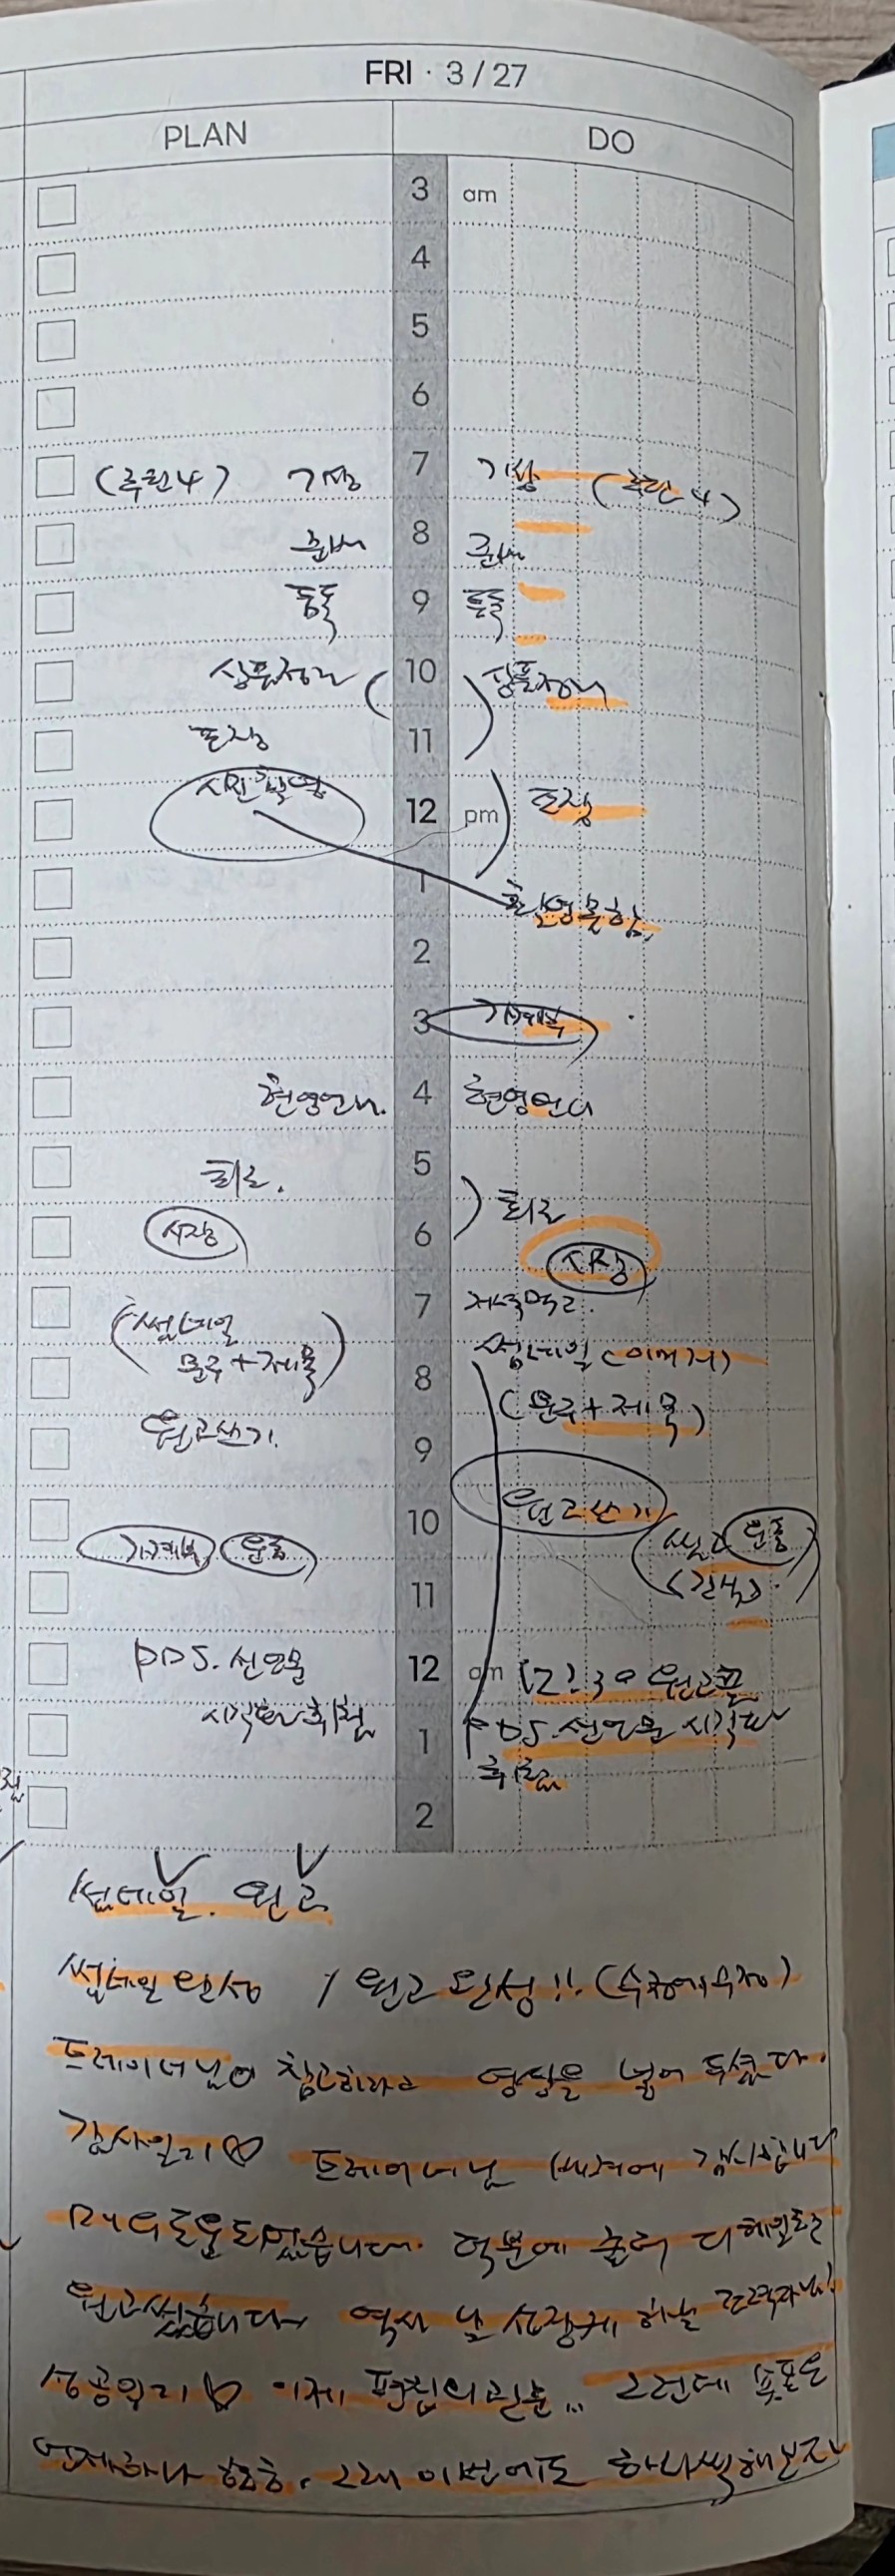 FRI · 3/27
PLAN
DO
3 am
4
5
6
(루틴4) 기상 7 기상 (루틴4)
준비 8 준비
등록 9 등록
상품정리 10 상품정리
포장 11
사진촬영 12 pm 포장
1 촬영못함
2
3 가계부
현영언니. 4 현영언니
퇴근. 5
퇴근
시장 6 시장
7 저녁먹고.
썸네일 썸네일 (이미지)
문구+제목 8 (문구+제목)
원고쓰기 9
원고쓰기
가계부 운동 10 운동
11
PDS. 선언문 12 am 12:30 원고끝
시각화 취침 1 PDS. 선언문 시각화
취침
2
썸네일. 원고
썸네일 완성 / 원고 완성!!. (수정에수정)
트레이너님이 참고하라고 영상을 넣어 두셨다.
감사일기♡ 트레이너님 감사합니다
도움되었습니다. 덕분에 좀더 디테일하
원고썼습니다 역시 날 성장케 하는
성공일기♡ 이제 편집의 길로... 그런데 쇼폼은
언제하나 흠흠. 그래 이번에도 하나씩해보자